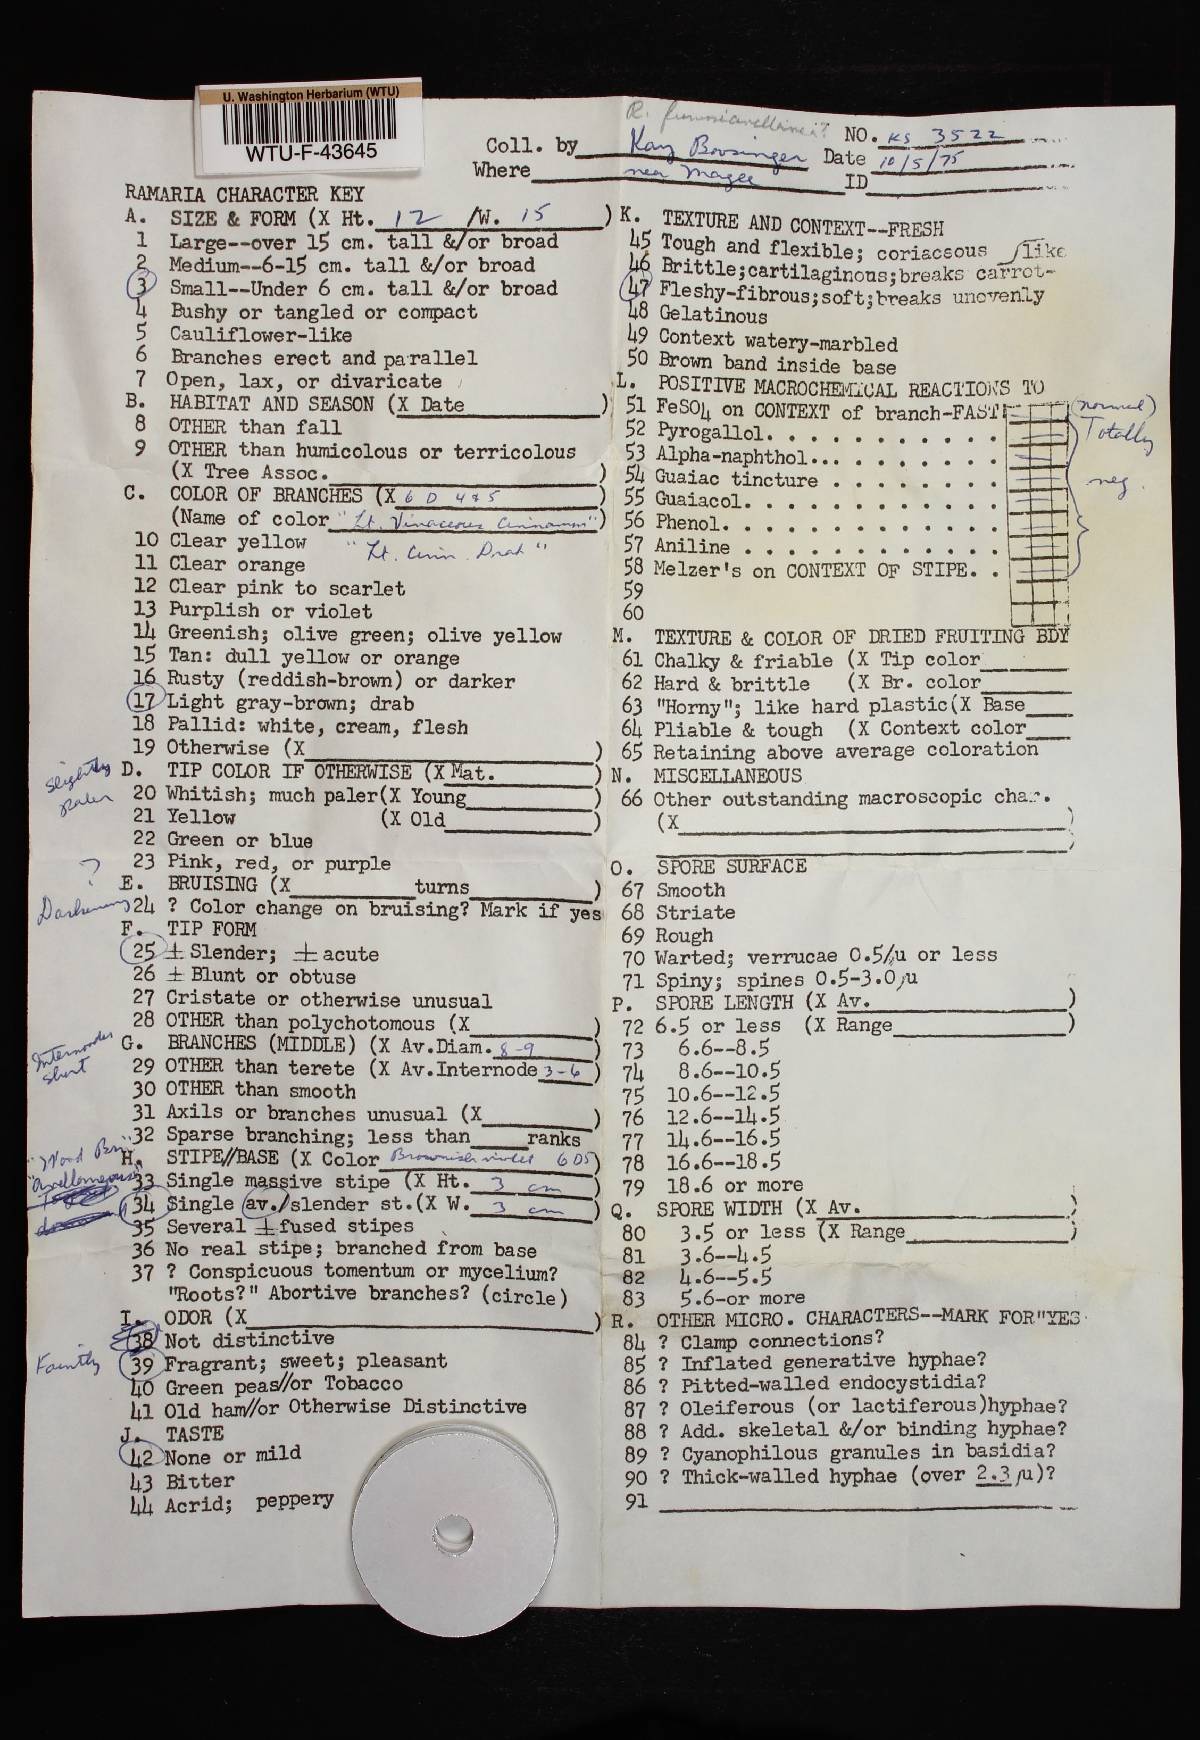 U. Washington Herbarium (WTU)
WTU-F-43645
R. fumosiavellinea? NO. KS 3522
Coll. by Kay Bossinger Date 10/5/75
Where near Magee ID
RAMARIA CHARACTER KEY
A. SIZE & FORM (X Ht. 12 /W. 15 )
1 Large--over 15 cm. tall &/or broad
2 Medium--6-15 cm. tall &/or broad
3 Small--Under 6 cm. tall &/or broad
4 Bushy or tangled or compact
5 Cauliflower-like
6 Branches erect and parallel
7 Open, lax, or divaricate
B. HABITAT AND SEASON (X Date )
8 OTHER than fall
9 OTHER than humicolous or terricolous
(X Tree Assoc. )
C. COLOR OF BRANCHES (X 6 D 4&5 )
(Name of color "Lt. Vinaceous Cinnamon")
10 Clear yellow "Lt. Cinn. Drab"
11 Clear orange
12 Clear pink to scarlet
13 Purplish or violet
14 Greenish; olive green; olive yellow
15 Tan: dull yellow or orange
16 Rusty (reddish-brown) or darker
17 Light gray-brown; drab
18 Pallid: white, cream, flesh
19 Otherwise (X )
slightly
paler
D. TIP COLOR IF OTHERWISE (X Mat. )
20 Whitish; much paler(X Young )
21 Yellow (X Old )
22 Green or blue
23 Pink, red, or purple
?
E. BRUISING (X turns )
Darkening 24 ? Color change on bruising? Mark if yes
F. TIP FORM
25 ± Slender; ± acute
26 ± Blunt or obtuse
27 Cristate or otherwise unusual
28 OTHER than polychotomous (X )
Internodes
short
G. BRANCHES (MIDDLE) (X Av.Diam. 8-9 )
29 OTHER than terete (X Av.Internode 3-6 )
30 OTHER than smooth
31 Axils or branches unusual (X )
32 Sparse branching; less than ranks
"Wood Brn"
H. STIPE//BASE (X Color Brownish violet 6D5)
33 Single massive stipe (X Ht. 3 cm )
34 Single av./slender st.(X W. 3 cm )
35 Several ± fused stipes
36 No real stipe; branched from base
37 ? Conspicuous tomentum or mycelium?
"Roots?" Abortive branches? (circle)
I. ODOR (X )
38 Not distinctive
Faintly 39 Fragrant; sweet; pleasant
40 Green peas//or Tobacco
41 Old ham//or Otherwise Distinctive
J. TASTE
42 None or mild
43 Bitter
44 Acrid; peppery
K. TEXTURE AND CONTEXT--FRESH
45 Tough and flexible; coriaceous /like
46 Brittle;cartilaginous;breaks carrot-
47 Fleshy-fibrous;soft;breaks unevenly
48 Gelatinous
49 Context watery-marbled
50 Brown band inside base
L. POSITIVE MACROCHEMICAL REACTIONS TO
51 FeSO4 on CONTEXT of branch-FAST! (normal)
52 Pyrogallol. . . . . . . . . . . . Totally
53 Alpha-naphthol... . . . . . . . . .
54 Guaiac tincture . . . . . . . . . neg.
55 Guaiacol. . . . . . . . . . . . .
56 Phenol. . . . . . . . . . . . . .
57 Aniline . . . . . . . . . . . . .
58 Melzer's on CONTEXT OF STIPE. . .
59
60
M. TEXTURE & COLOR OF DRIED FRUITING BDY
61 Chalky & friable (X Tip color
62 Hard & brittle (X Br. color
63 "Horny"; like hard plastic(X Base
64 Pliable & tough (X Context color
65 Retaining above average coloration
N. MISCELLANEOUS
66 Other outstanding macroscopic char.
(X )
)
O. SPORE SURFACE
67 Smooth
68 Striate
69 Rough
70 Warted; verrucae 0.5/u or less
71 Spiny; spines 0.5-3.0/u
P. SPORE LENGTH (X Av. )
72 6.5 or less (X Range )
73 6.6--8.5
74 8.6--10.5
75 10.6--12.5
76 12.6--14.5
77 14.6--16.5
78 16.6--18.5
79 18.6 or more
Q. SPORE WIDTH (X Av. )
80 3.5 or less (X Range )
81 3.6--4.5
82 4.6--5.5
83 5.6-or more
R. OTHER MICRO. CHARACTERS--MARK FOR"YES
84 ? Clamp connections?
85 ? Inflated generative hyphae?
86 ? Pitted-walled endocystidia?
87 ? Oleiferous (or lactiferous)hyphae?
88 ? Add. skeletal &/or binding hyphae?
89 ? Cyanophilous granules in basidia?
90 ? Thick-walled hyphae (over 2.3/u)?
91